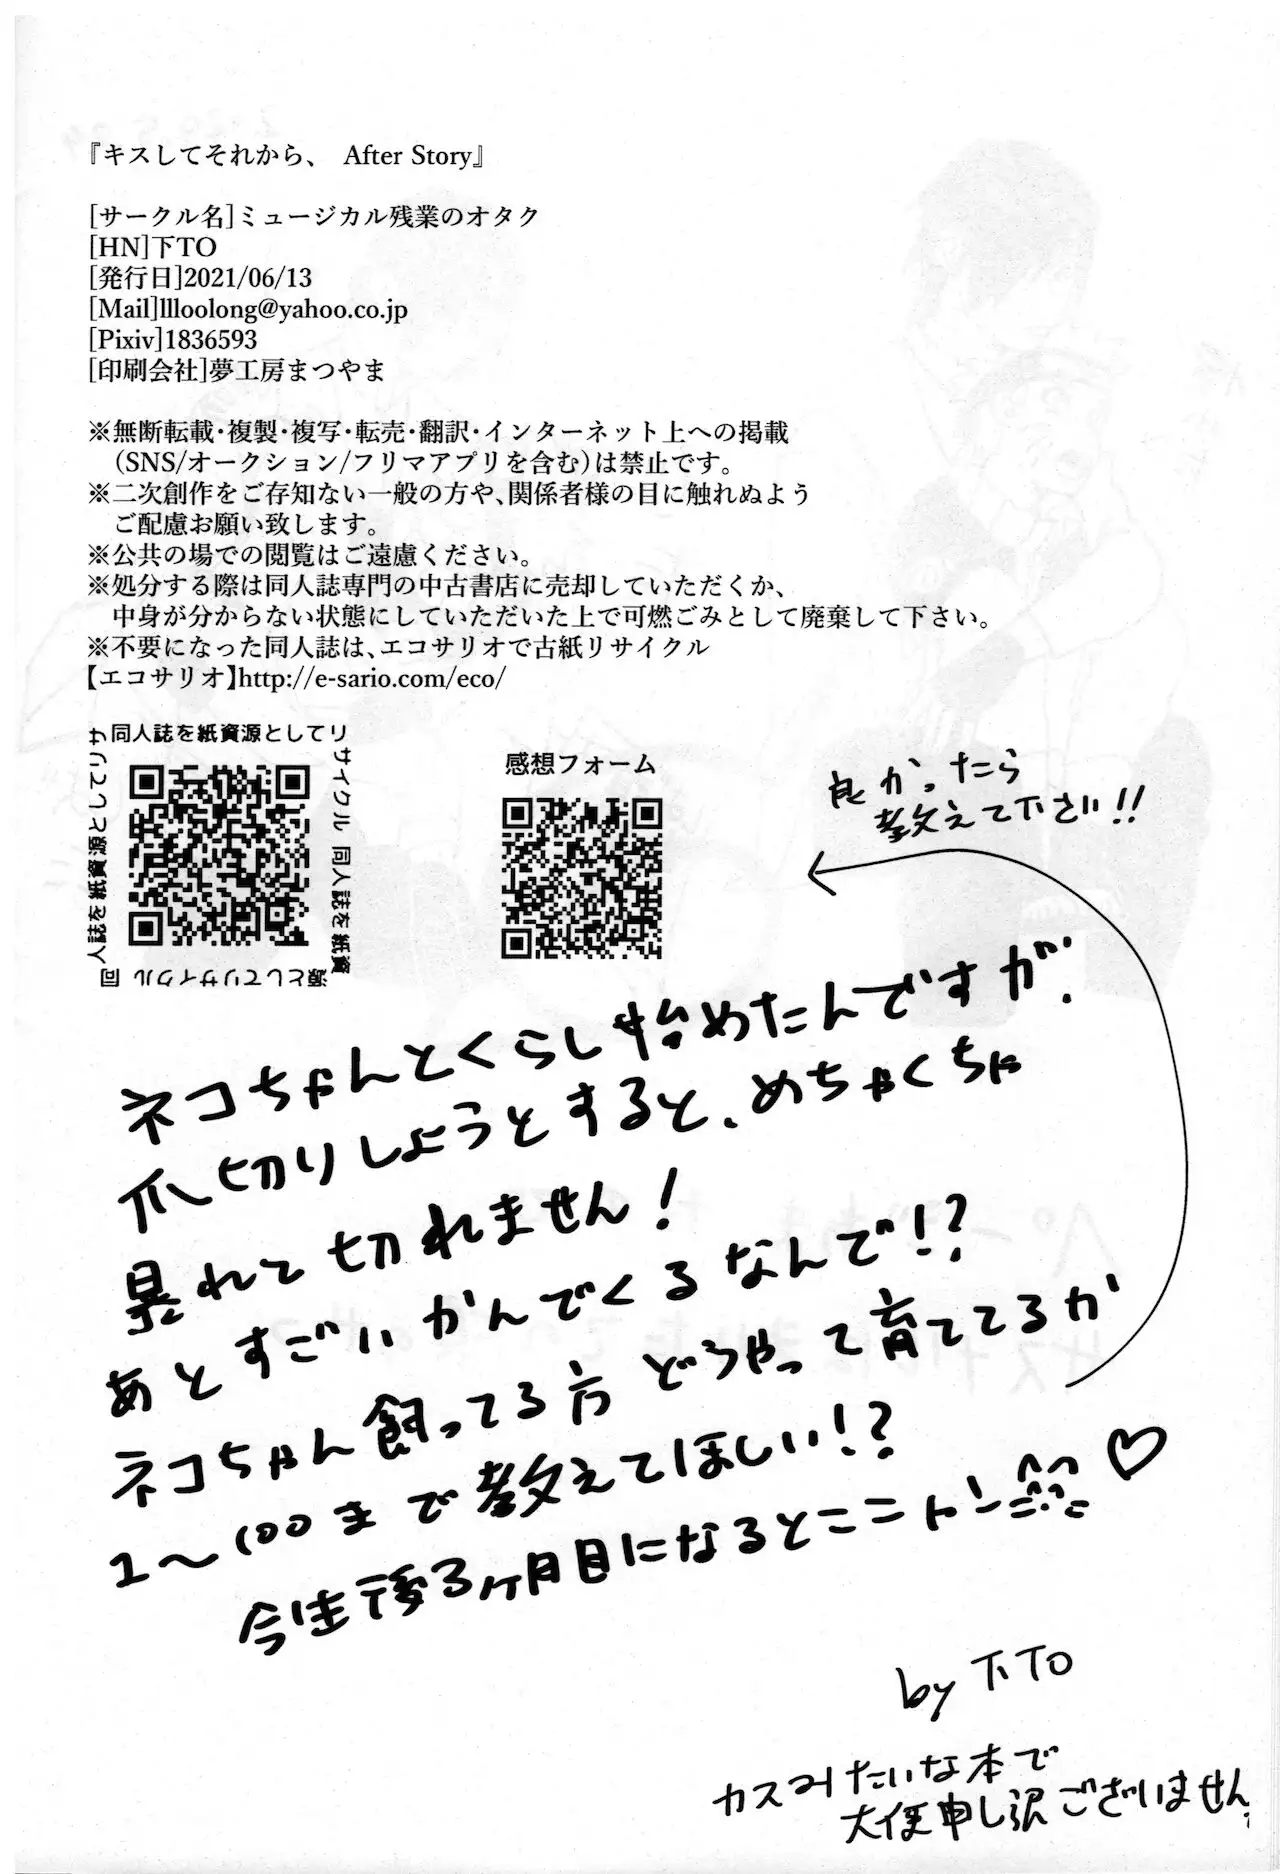 『キスしてそれから、 After Story』
[サークル名]ミュージカル残業のオタク
[HN]下TO
[発行日]2021/06/13
[Mail]llloolong@yahoo.co.jp
[Pixiv]1836593
[印刷会社]夢工房まつやま
※無断転載・複製・複写・転売・翻訳・インターネット上への掲載
(SNS/オークション/フリマアプリを含む)は禁止です。
※二次創作をご存知ない一般の方や、関係者様の目に触れぬよう
ご配慮お願い致します。
※公共の場での閲覧はご遠慮ください。
※処分する際は同人誌専門の中古書店に売却していただくか、
中身が分からない状態にしていただいた上で可燃ごみとして廃棄して下さい。
※不要になった同人誌は、エコサリオで古紙リサイクル
【エコサリオ】http://e-sario.com/eco/
同人誌を紙資源としてリ
サイクル 同人誌を紙資
源としてリサイクル 同
人誌を紙資源としてリサ
感想フォーム
良かったら
教えて下さい!!
ネコちゃんとくらし始めたんですが、
爪切りしようとすると、めちゃくちゃ
暴れて切れません!
あとすごいかんでくるなんで!?
ネコちゃん飼ってる方どうやって育ててるか
1～100まで教えてほしい!?
今生後3ヶ月目になるとこニャン♡
by 下TO
カスみたいな本で
大変申し訳ございません